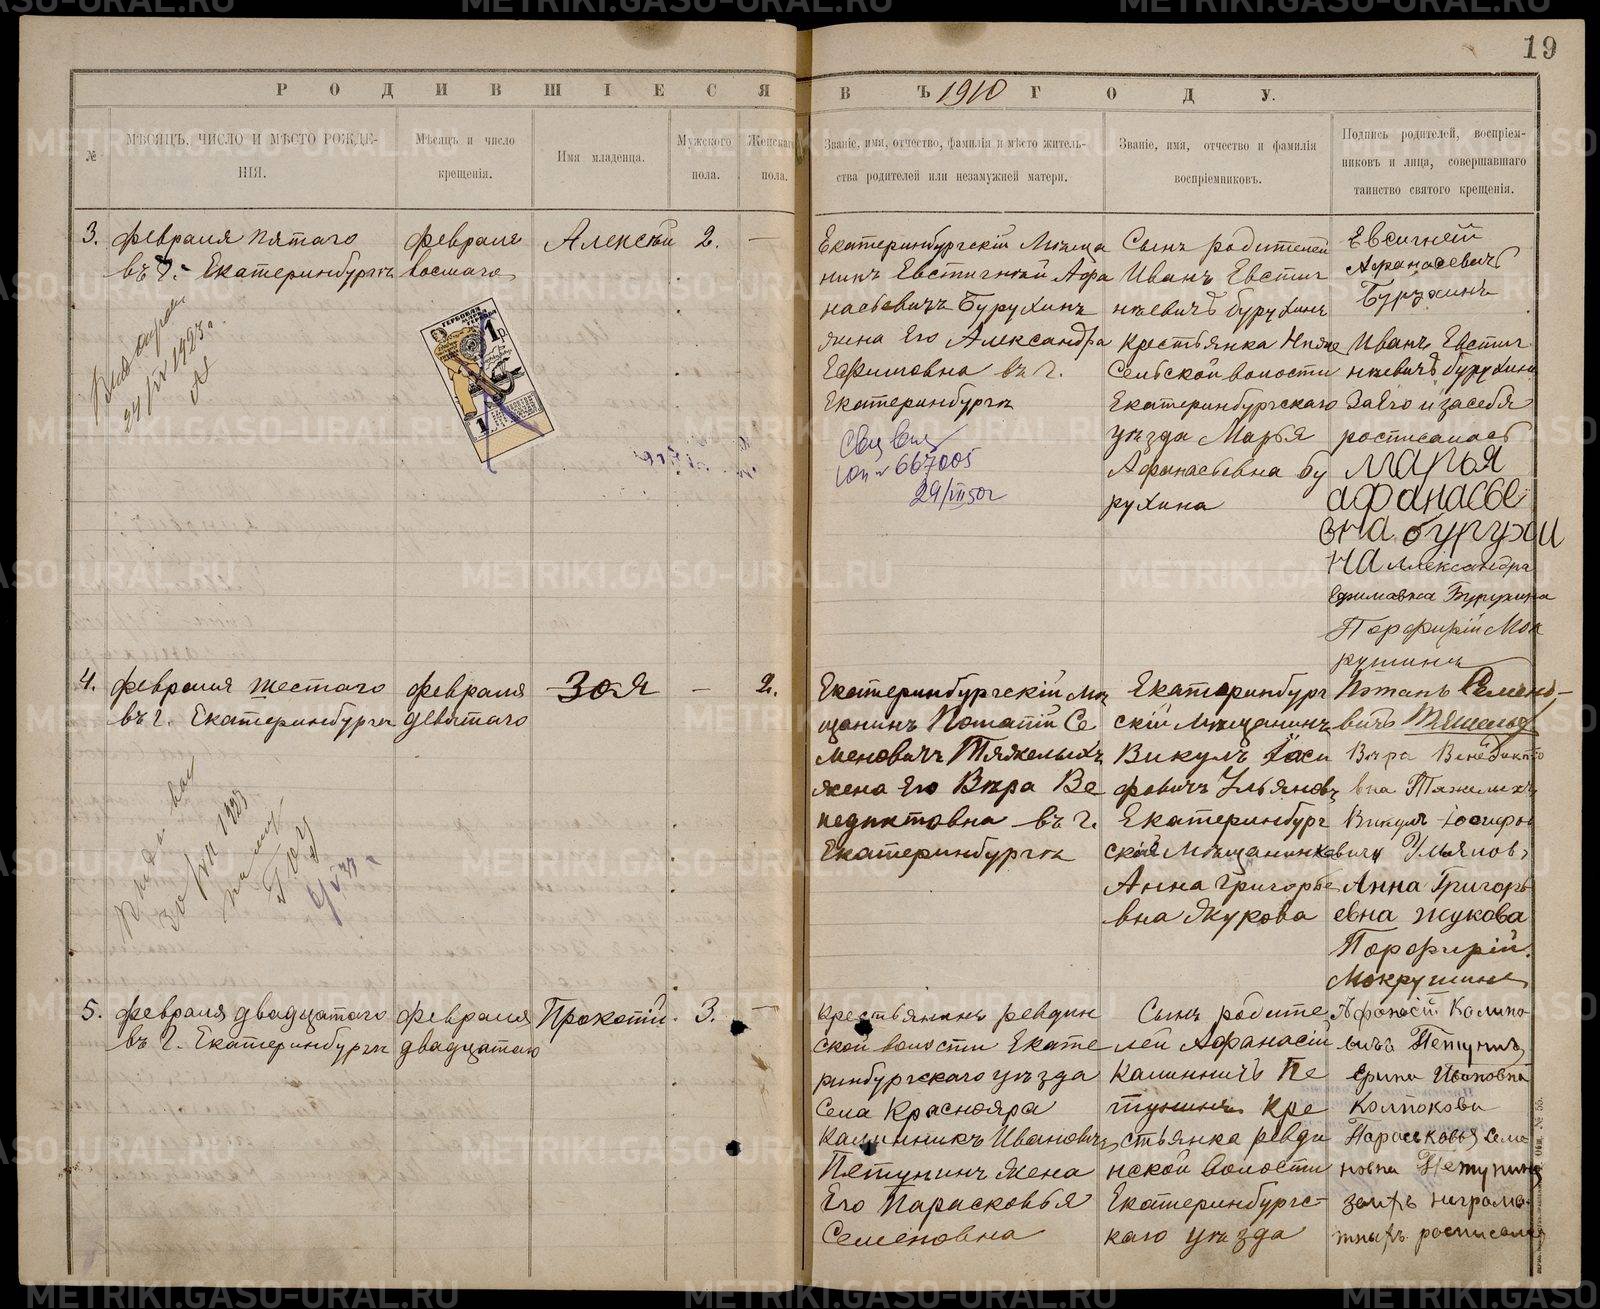 19
РОДИВШІЕСЯ ВЪ 1910 ГОДУ.
№
МѢСЯЦЪ, ЧИСЛО И МѢСТО РОЖДЕ-
НІЯ.
Мѣсяцъ и число
крещенія.
Имя младенца.
Мужского
пола.
Женскаго
пола.
Званіе, имя, отчество, фамилія и мѣсто житель-
ства родителей или незамужней матери.
Званіе, имя, отчество и фамилія
воспріемниковъ.
Подпись родителей, воспріем-
никовъ и лица, совершавшаго
таинство святого крещенія.
3.
февраля пятаго
въ г. Екатеринбургѣ
24/IV 1923 г.
февраля
восмаго
Алексѣй
2.
—
Екатеринбургскій Мѣща
нинъ Евстигнѣй Афа
насьевичъ Бурухинъ
жена Его Александра
Ефимовна въ г.
Екатеринбургѣ
667005
29/VII 50г
Сынъ родителей
Иванъ Евстиг
нѣевичъ Бурухинъ
Крестьянка Нижне
Сельской волости
Екатеринбургскаго
уѣзда Марья
Афанасьевна Бу
рухина
Евсигней
Афанасевичъ
Бурухинъ
Иванъ Евстиг
нѣевичъ Бурухинъ
За Его и засебя
росписалась
Марья
афанасье
вна бурухи
на Александра
Ефимавна Бурухина
Порфирій Мок
рушинъ
ГЕРБОВАЯ МАРКА
1 р.
1
4.
февраля шестаго
въ г. Екатеринбургѣ
февраля
девятаго
Зоя
—
2.
Екатеринбургскій мѣ
щанинъ Потапій Се
меновичъ Тяжелыхъ
жена Его Вѣра Ве
недиктовна въ г.
Екатеринбургѣ
Екатеринбург
скій мѣщанинъ
Викулъ Іоси
фовичъ Ульяновъ
Екатеринбург
ская Мѣщанинка
Анна Григорье
вна Жукова
Потапъ Семено-
вичъ
Вѣра Венедикто
вна Тяжелыхъ
Викулъ Іосифов
вичъ Ульяновъ
Анна Григорь
евна Жукова
Порфирій
Мокрушинъ
5.
февраля двадцатаго
въ г. Екатеринбургѣ
февраля
двадцатаго
Прокопій
3.
—
Крестьянинъ ревдин
ской волости Екате
ринбургскаго уѣзда
Села Краснояра
Калинникъ Ивановичъ
Петунинъ жена
Его Парасковья
Семеновна
Сынъ родите
лей Афанасій
Калиничъ Пе
тунинъ Кре
стьянка ревди
нской волости
Екатеринбургс-
каго уѣзда
Афонасій Калино
вичъ Петунинъ
Ирина Ивановна
Колпокова
Параськовья Семе
новна Петунина
заихъ награмо
тныхъ росписался